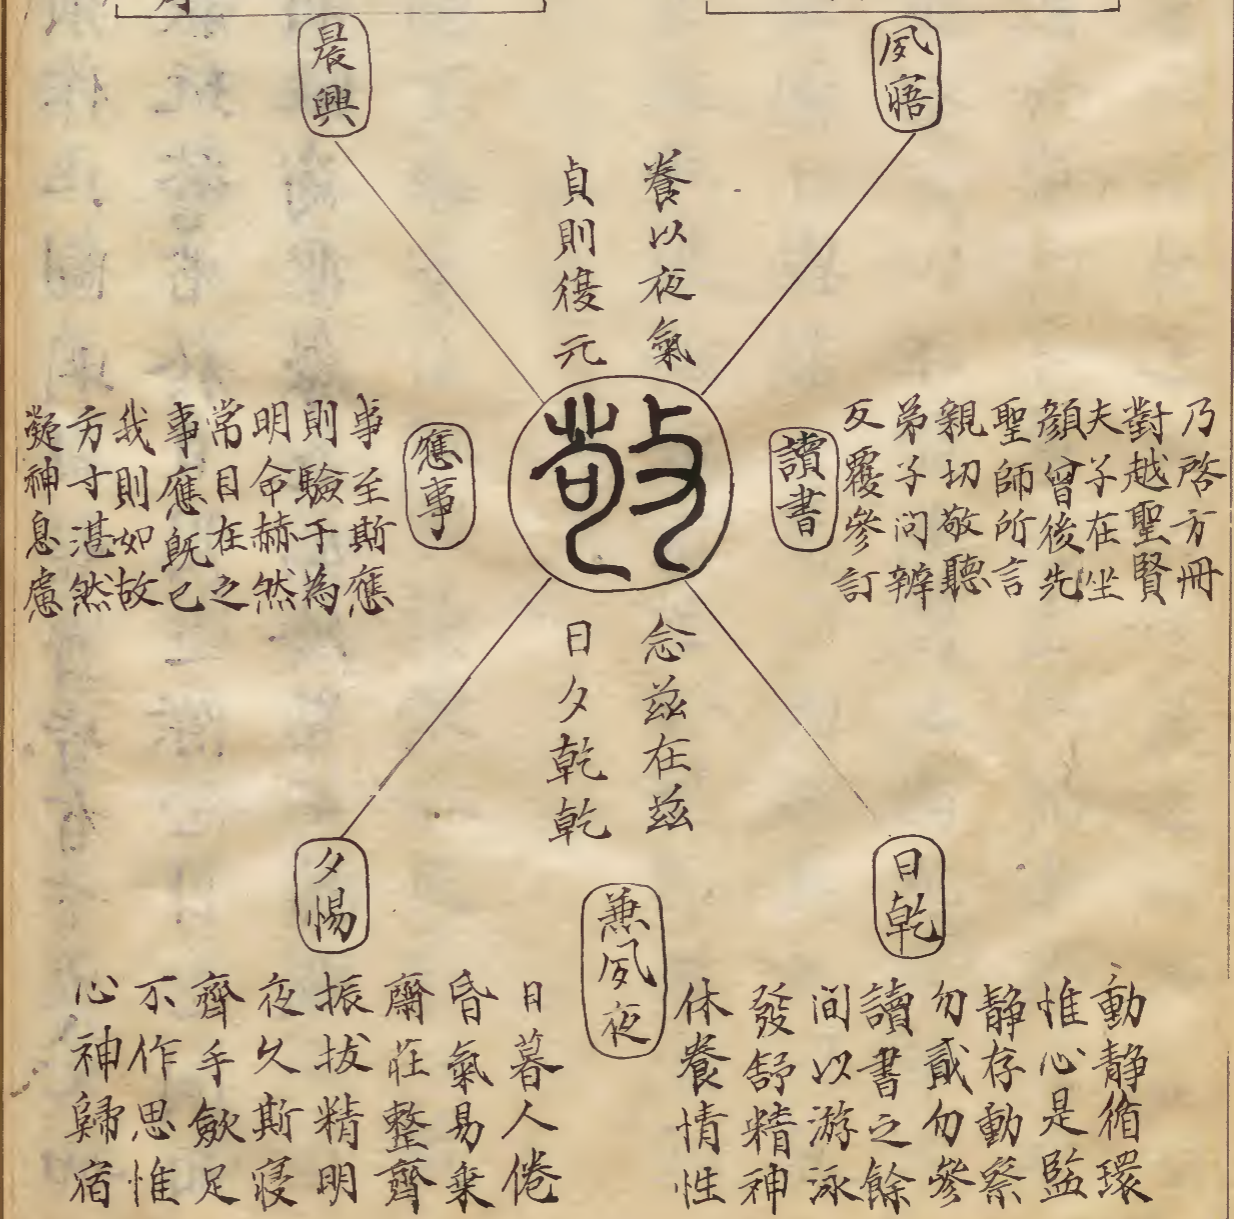 夙寤
晨興
養以夜氣
貞則復元
敬
讀書
乃啓方冊
對越聖賢
夫子在坐
顏曾後先
聖師所言
親切敬聽
弟子問辨
反覆參訂
應事
事至斯應
則驗于為
明命赫然
常目在之
事應旣已
我則如故
方寸湛然
凝神息慮
念茲在茲
日夕乾乾
日乾
動静循環
惟心是監
静存動察
勿貳勿參
讀書之餘
间以游泳
發舒精神
休養情性
兼夙夜
夕惕
日暮人倦
昏氣易乗
齋莊整齊
振拔精明
夜久斯寝
齊手斂足
不作思惟
心神歸宿